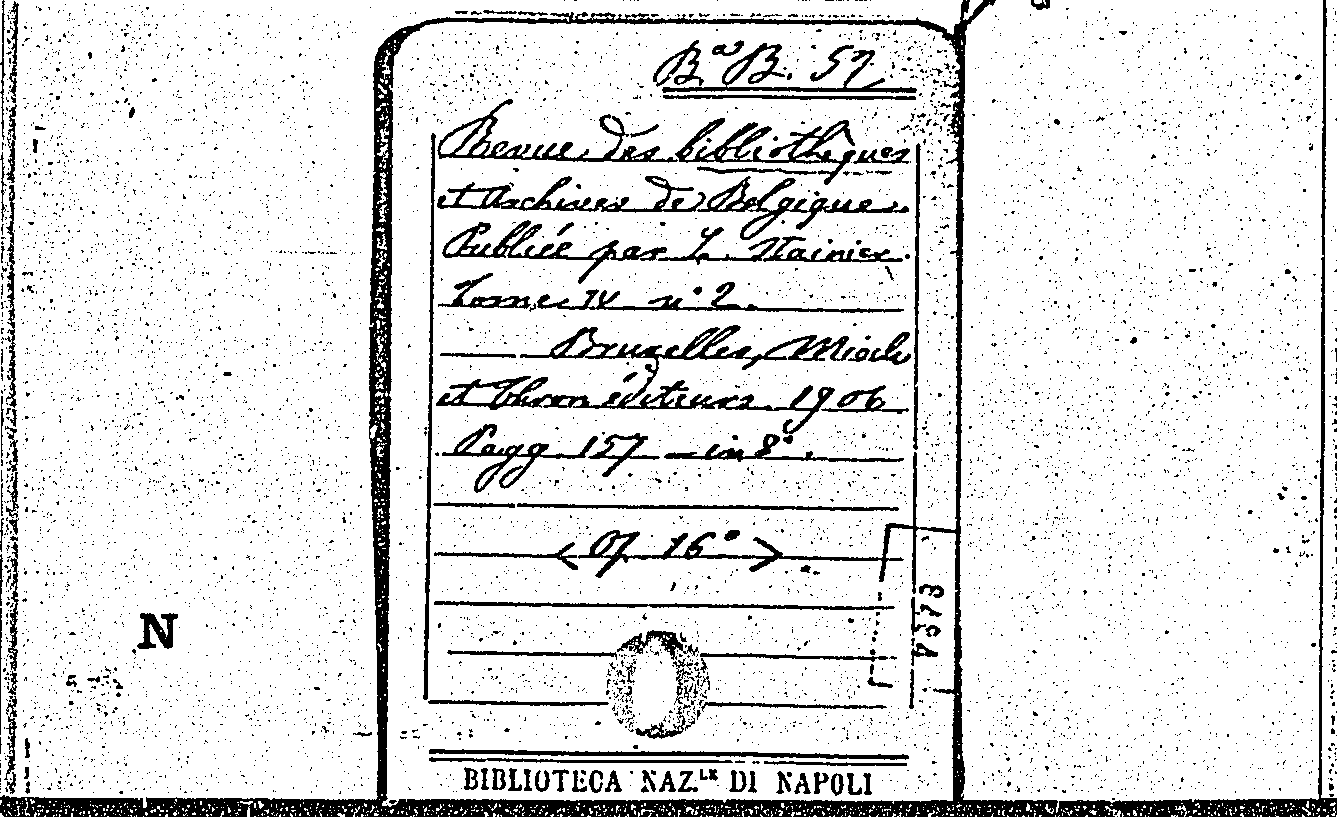 B.ª B. 57
Revue des bibliothèques
et Archives de Belgique.
Publiée par L. Stainier.
Tome IV n° 2.
Bruxelles, Misch
et Thron éditeurs 1906
Pagg 157 – in 8°.
< Of. 16° >
7373
N
BIBLIOTECA NAZ.LE DI NAPOLI